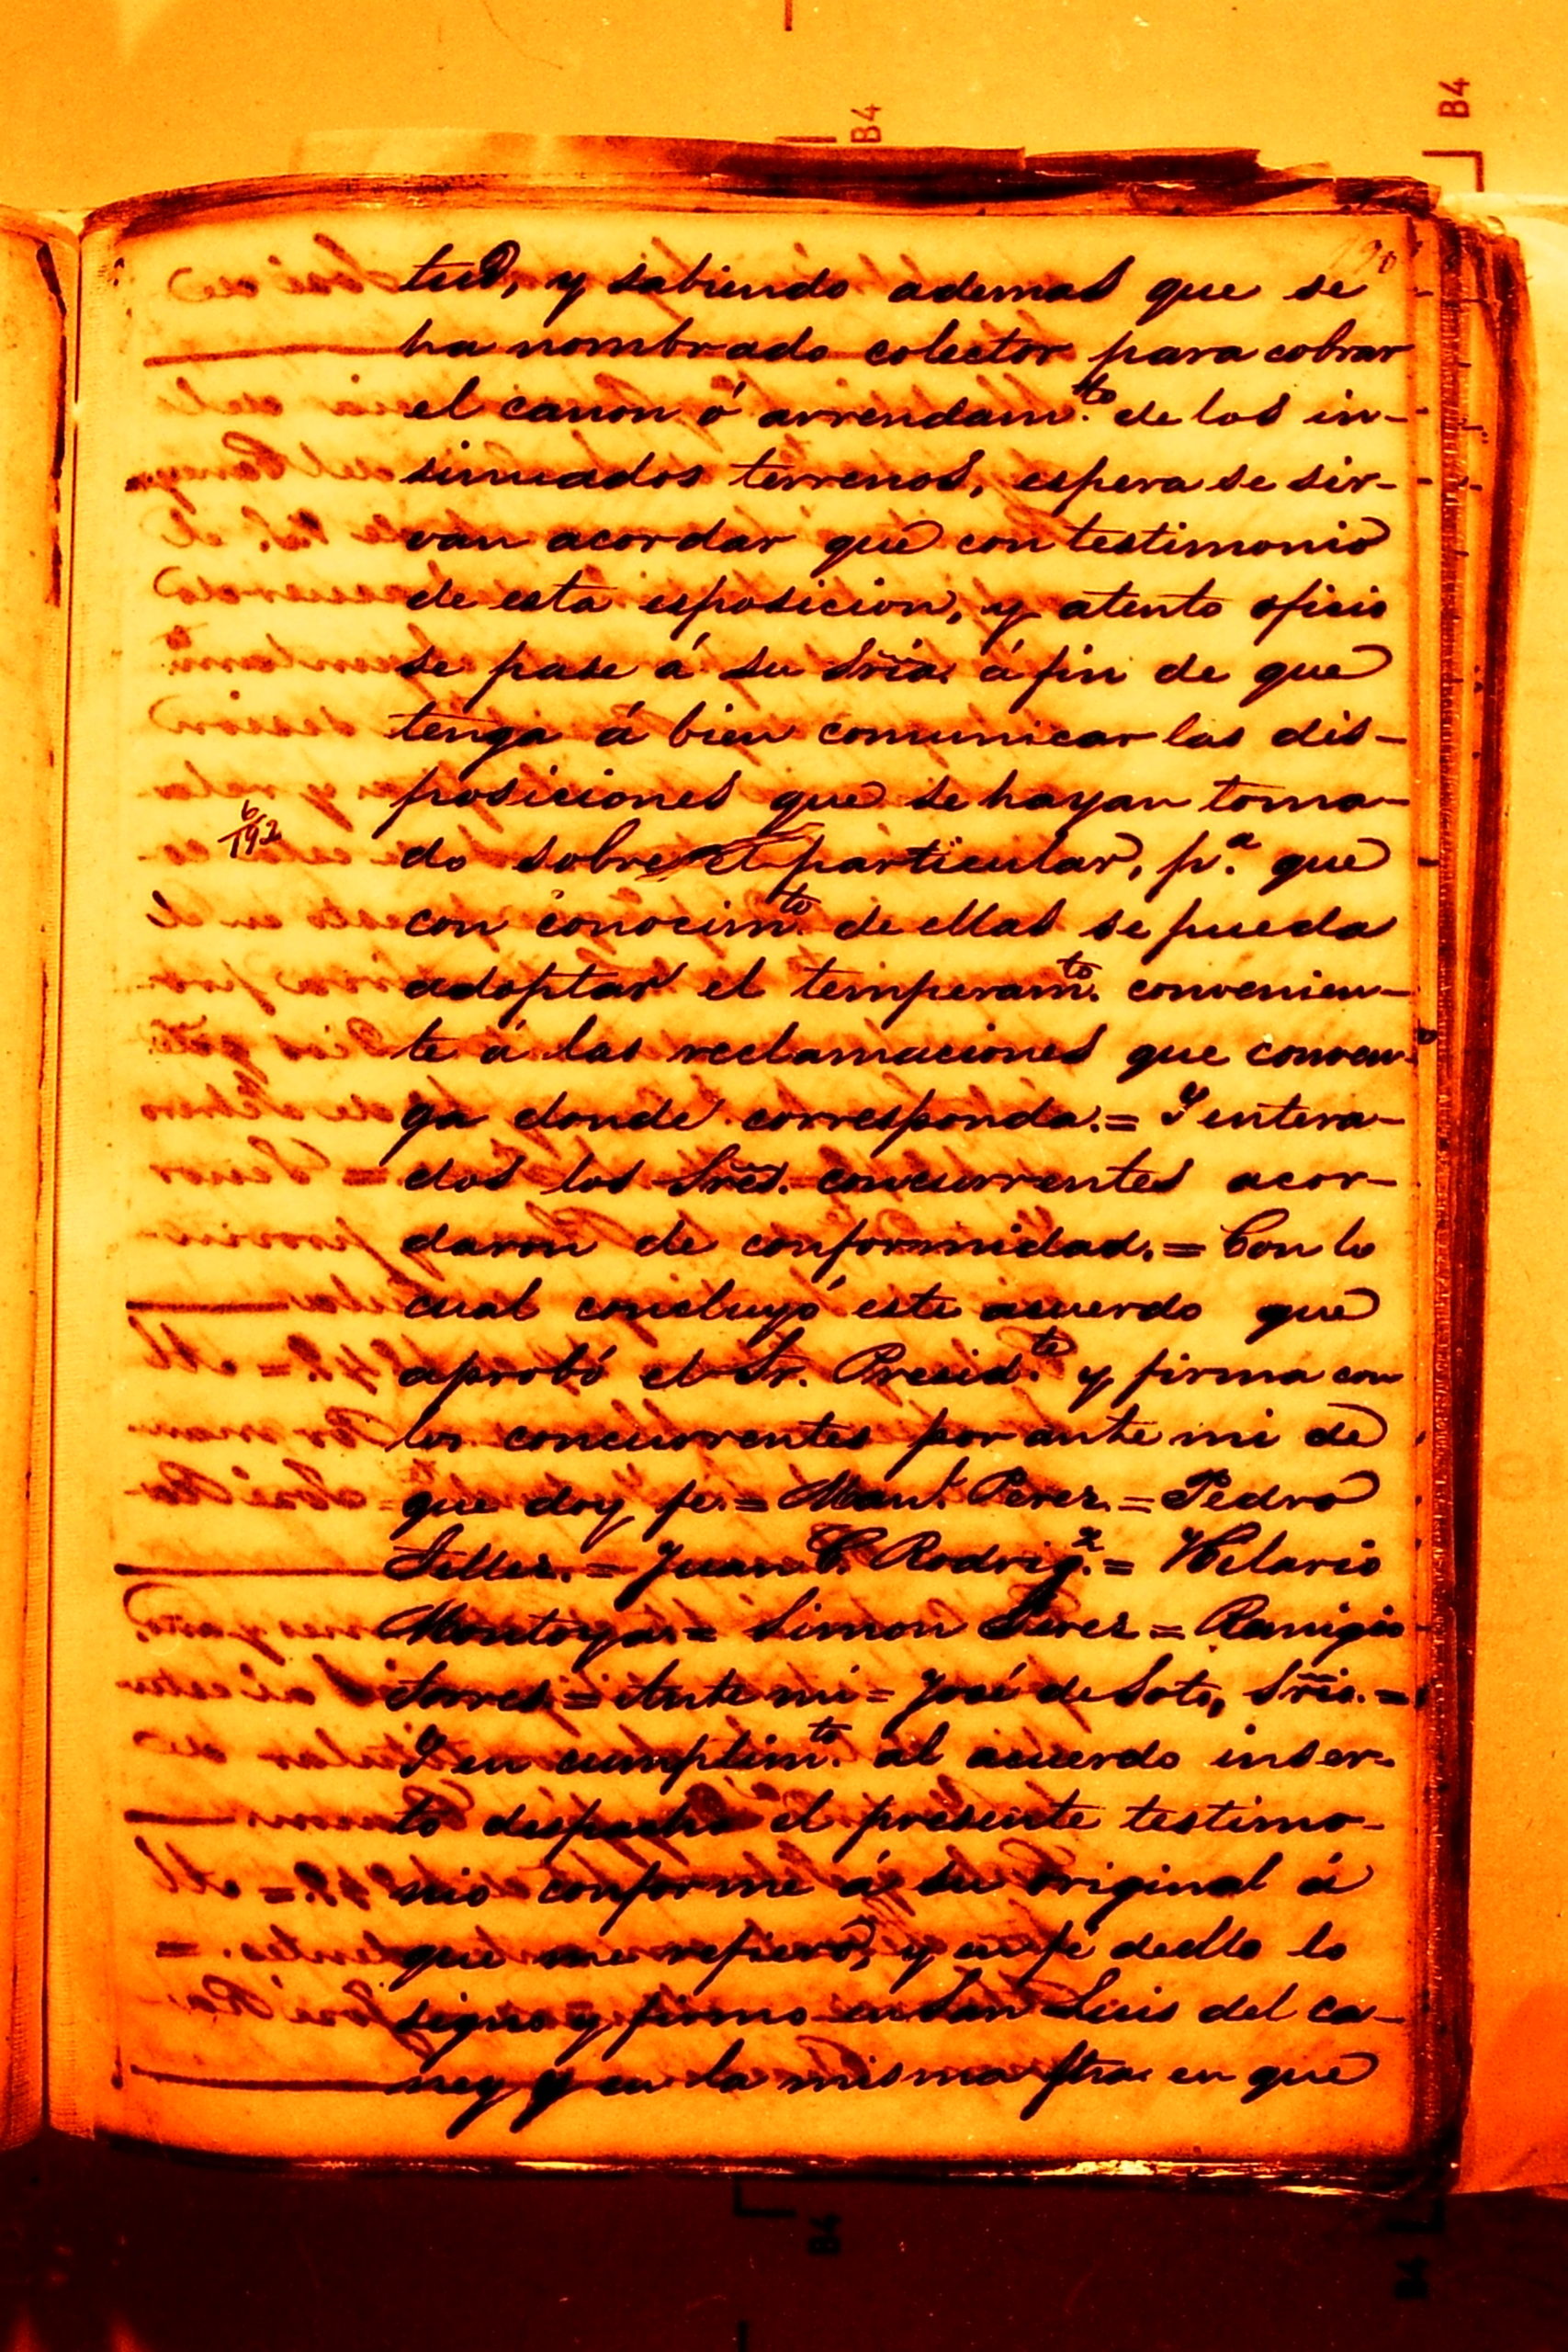 B4
B4
tud, y sabiendo ademas que se
ha nombrado colector para cobrar
el canon ó arrendam.to de los in-
sinuados terrenos, espera se sir-
van acordar que con testimonio
de esta esposicion, y atento oficio
se pase á su Sría. á fin de que
tenga á bien comunicar las dis-
posiciones que se hayan toma-
6/192
do sobre el particular, p.a que
con conocim.to de ellas se pueda
adoptar el temperam.to convenien-
te á las reclamaciones que conven-
ga donde corresponda. = Y entera-
dos los Sres. concurrentes acor-
daron de conformidad. = Con lo
cual concluyó este acuerdo que
aprobó el Sr. Presid.te y firma con
los concurrentes por ante mi de
que doy fé. = Man.l Perez. = Pedro
Teller. = Juan C. Rodrig.z = Hilario
Montoya. = Simon Perez = Remigio
Torres = Ante mi = José de Soto, Srio. =
Y en cumplim.to al acuerdo inser-
to despacho el presente testimo-
nio conforme á su original á
que me refiero, y en fé de ello lo
signo y firmo en San Luis del ca-
ney y en la misma fha. en que
B4
B4